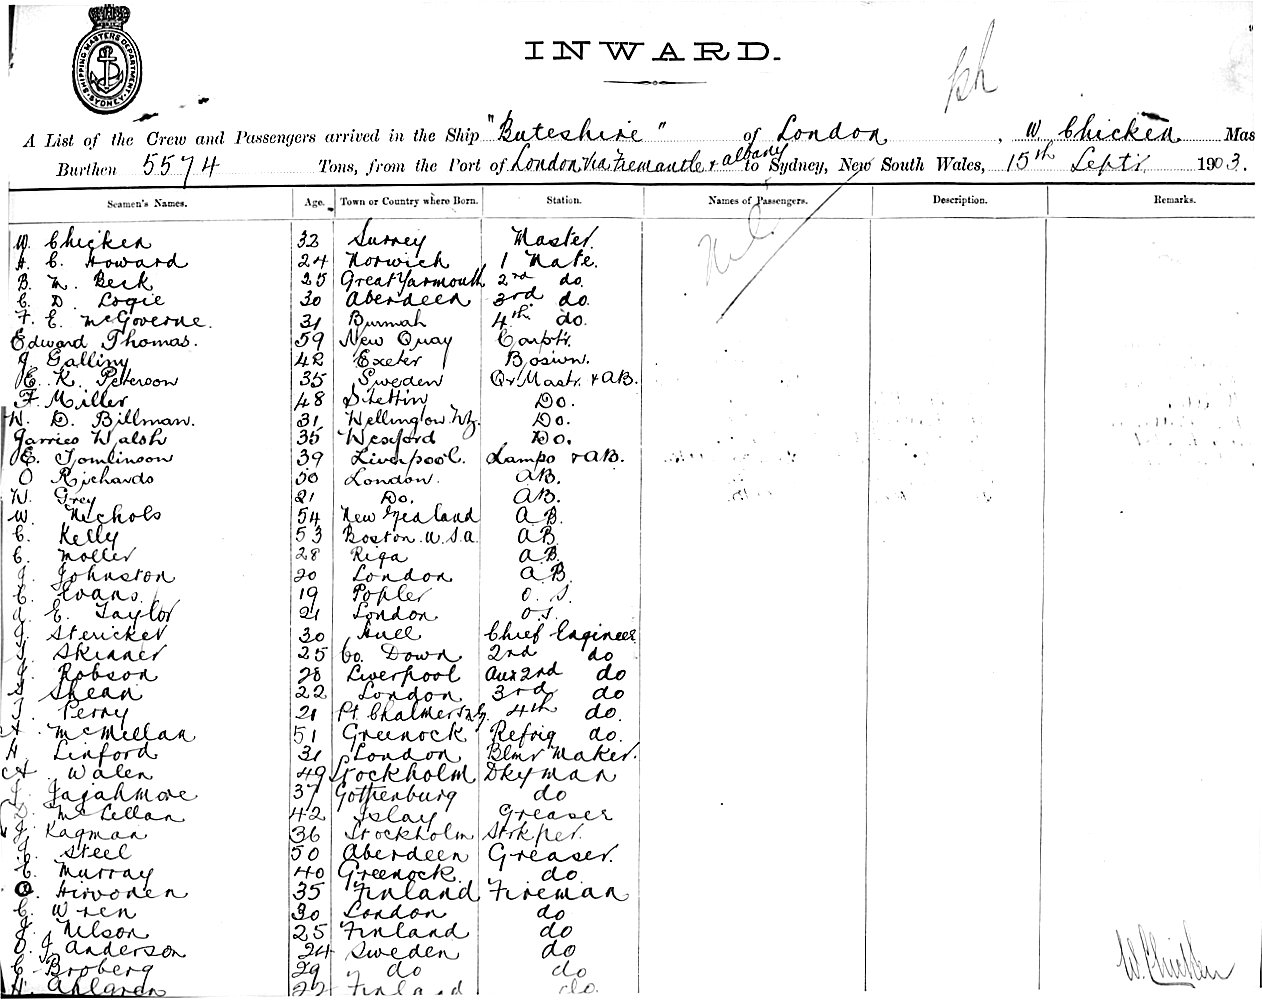 SHIPPING MASTERS DEPARTMENT. SYDNEY
INWARD.
A List of the Crew and Passengers arrived in the Ship "Buteshire" of London, W Chicken Mas
Burthen 5574 Tons, from the Port of London via Fremantle & Albany to Sydney, New South Wales, 15th Septr 1903.
Seamen's Names. Age. Town or Country where Born. Station. Names of Passengers. Description. Remarks.
Nil
W. Chicken 32 Surrey Master.
H. C. Howard 24 Norwich 1 Mate.
B. M. Beck 25 Great Yarmouth 2nd do.
C. D. Logie 30 Aberdeen 3rd do.
F. E. McGoverne. 31 Burmah 4th do.
Edward Thomas. 59 New Quay Carptr.
J. Galliny 42 Exeter Boswn.
E. K. Peterson 35 Sweden Qr Mastr. & AB.
F. Miller 48 Stettin Do.
W. D. Billman. 31 Wellington Nz. Do.
James Walsh 35 Wexford Do.
E. Tomlinson 39 Liverpool. Lamps & AB.
O Richards 50 London. AB.
W. Grey 21 Do. AB.
W. Nichols 54 New Zealand AB.
C. Kelly 53 Boston. U.S.A. AB.
C. Moller 28 Riga AB.
J. Johnston 20 London AB.
C. Evans. 19 Popler O.S.
J. E. Taylor 21 London O.S.
J. Stericker 30 Hull Chief Engineer
Skinner 25 Co. Down 2nd do
J. Robson 28 Liverpool Aux 2nd do
S. Shean 22 London 3rd do
Perry 21 Pt. Chalmers nz. 4th do.
A. McMillan 51 Greenock Refrig do.
Linford 31 London Blmr Maker.
A Walen 49 Stockholm Dkyman
37 Gothenburg do
D. McLellan 42 Islay Greaser
J. Kagman 36 Stockholm Strkper.
Steel 50 Aberdeen Greaser.
C. Murray 40 Greenock. do.
O. Hirvonen 35 Finland Fireman
C. Wren 30 London do
J. Nilson 25 Finland do
O. J. Anderson 24 Sweden do
C. Broberg 29 " do do
H. Ahlgren 22 Finland do.
W. Chicken